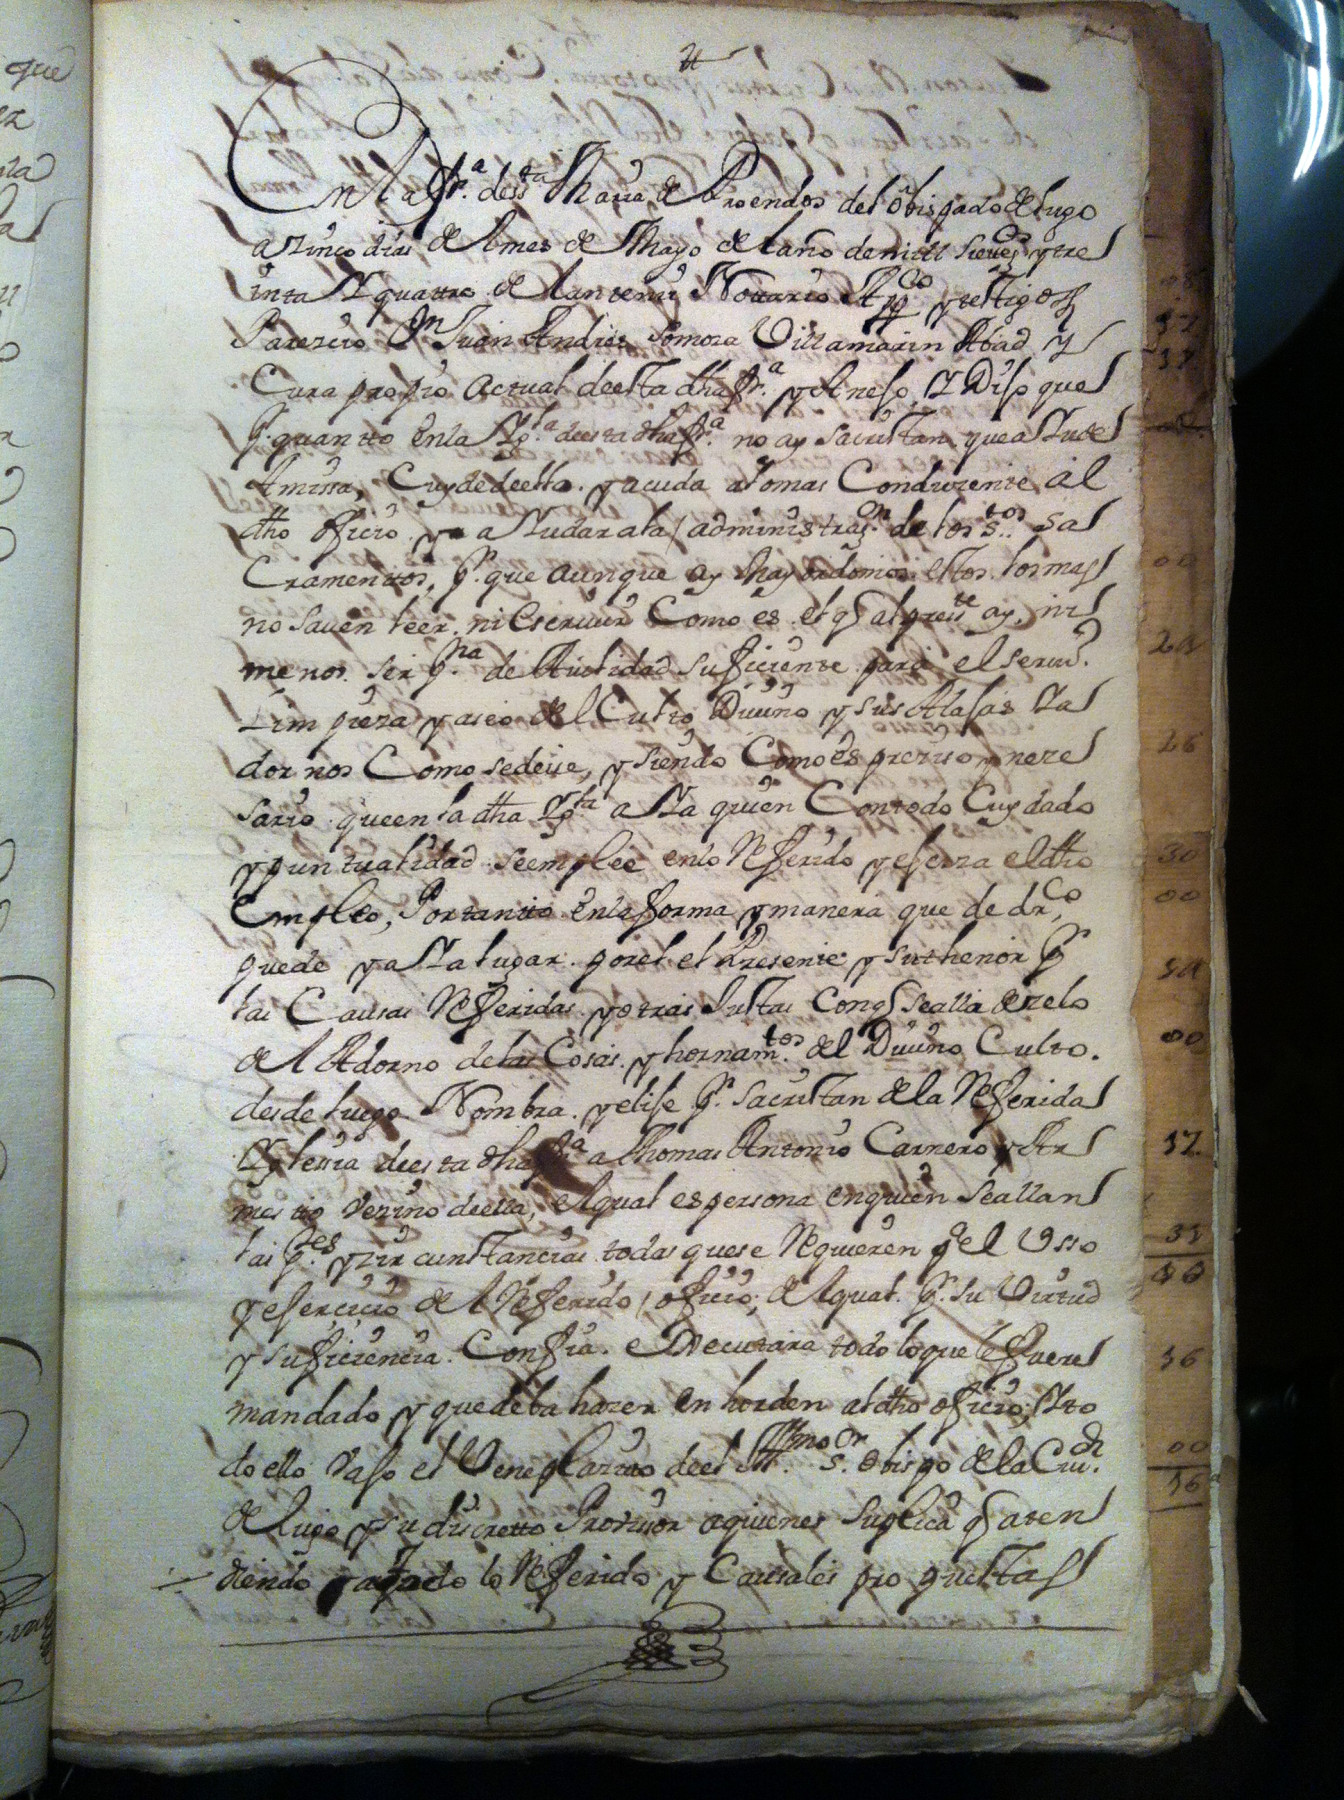 En la fra. de sta Maria de Proendos del obispado de lugo
a zinco dias del mes de Mayo del año de mill sietezs y tre
inta y quattro delante mi Nottario Appco y testigos
Parezcio Dn Juan Andres somoza Villamarin Abad y
Cura propio actual de esta dha fra. y Anejo, y Dijo que
pr. quantto en la Yglª. de esta dha fra. no ay sacristan que ayude
A missa, Cuyde de ella. y acuda a lo mas Conduzente al
dho oficio y a ayudar a la administrazon. de los stos. sa
Cramenttos, pr. que aunque ay Mayordomos estos los mas
no saven leer. ni Escriuir Como es el q al presste ay. ni
menos ser prna de Auilidad suficiente para el seruo.
Limpieza y aseo del Culto Diuino y sus Alajas y a
dornos Como se deue, y siendo Como es preziso y neze
sario que en la dha Yglª aya quien Con todo Cuydado
y puntualidad se emplee en lo Referido y ejerza el dho
Empleo, Portantto en la forma y manera que de drco,
puede y aya lugar. por el el Presente y su thenor pr
las Causas Referidas y otras Justas Con q se alla de zelo
del Adorno de las Cosas. y hornamtos. del Diuino Culto.
desde luego Nombra. y elije pr. sacristan de la Referida
Yglessia de esta dha fra a Thomas Antonio Carnero y Ar
mestto Vezino de ella, el qual es persona en quien se allan
las ptes. y zircunstancias todas que se Requieren pa el Usso
y ejercicio del Referido oficio; del qual. pr. su Virtud
y suficiencia. Confia. eXecutara todo lo que le fuere
mandado y que deba hazer en horden al dho oficio; y to
do ello Vajo el Veneplazitto de el Yllmo. Sr. Obispo de la Ciud.
de Lugo y su discretto Provisor a quienes suplica q aten
diendo a todo lo Referido y Causales pro puestas